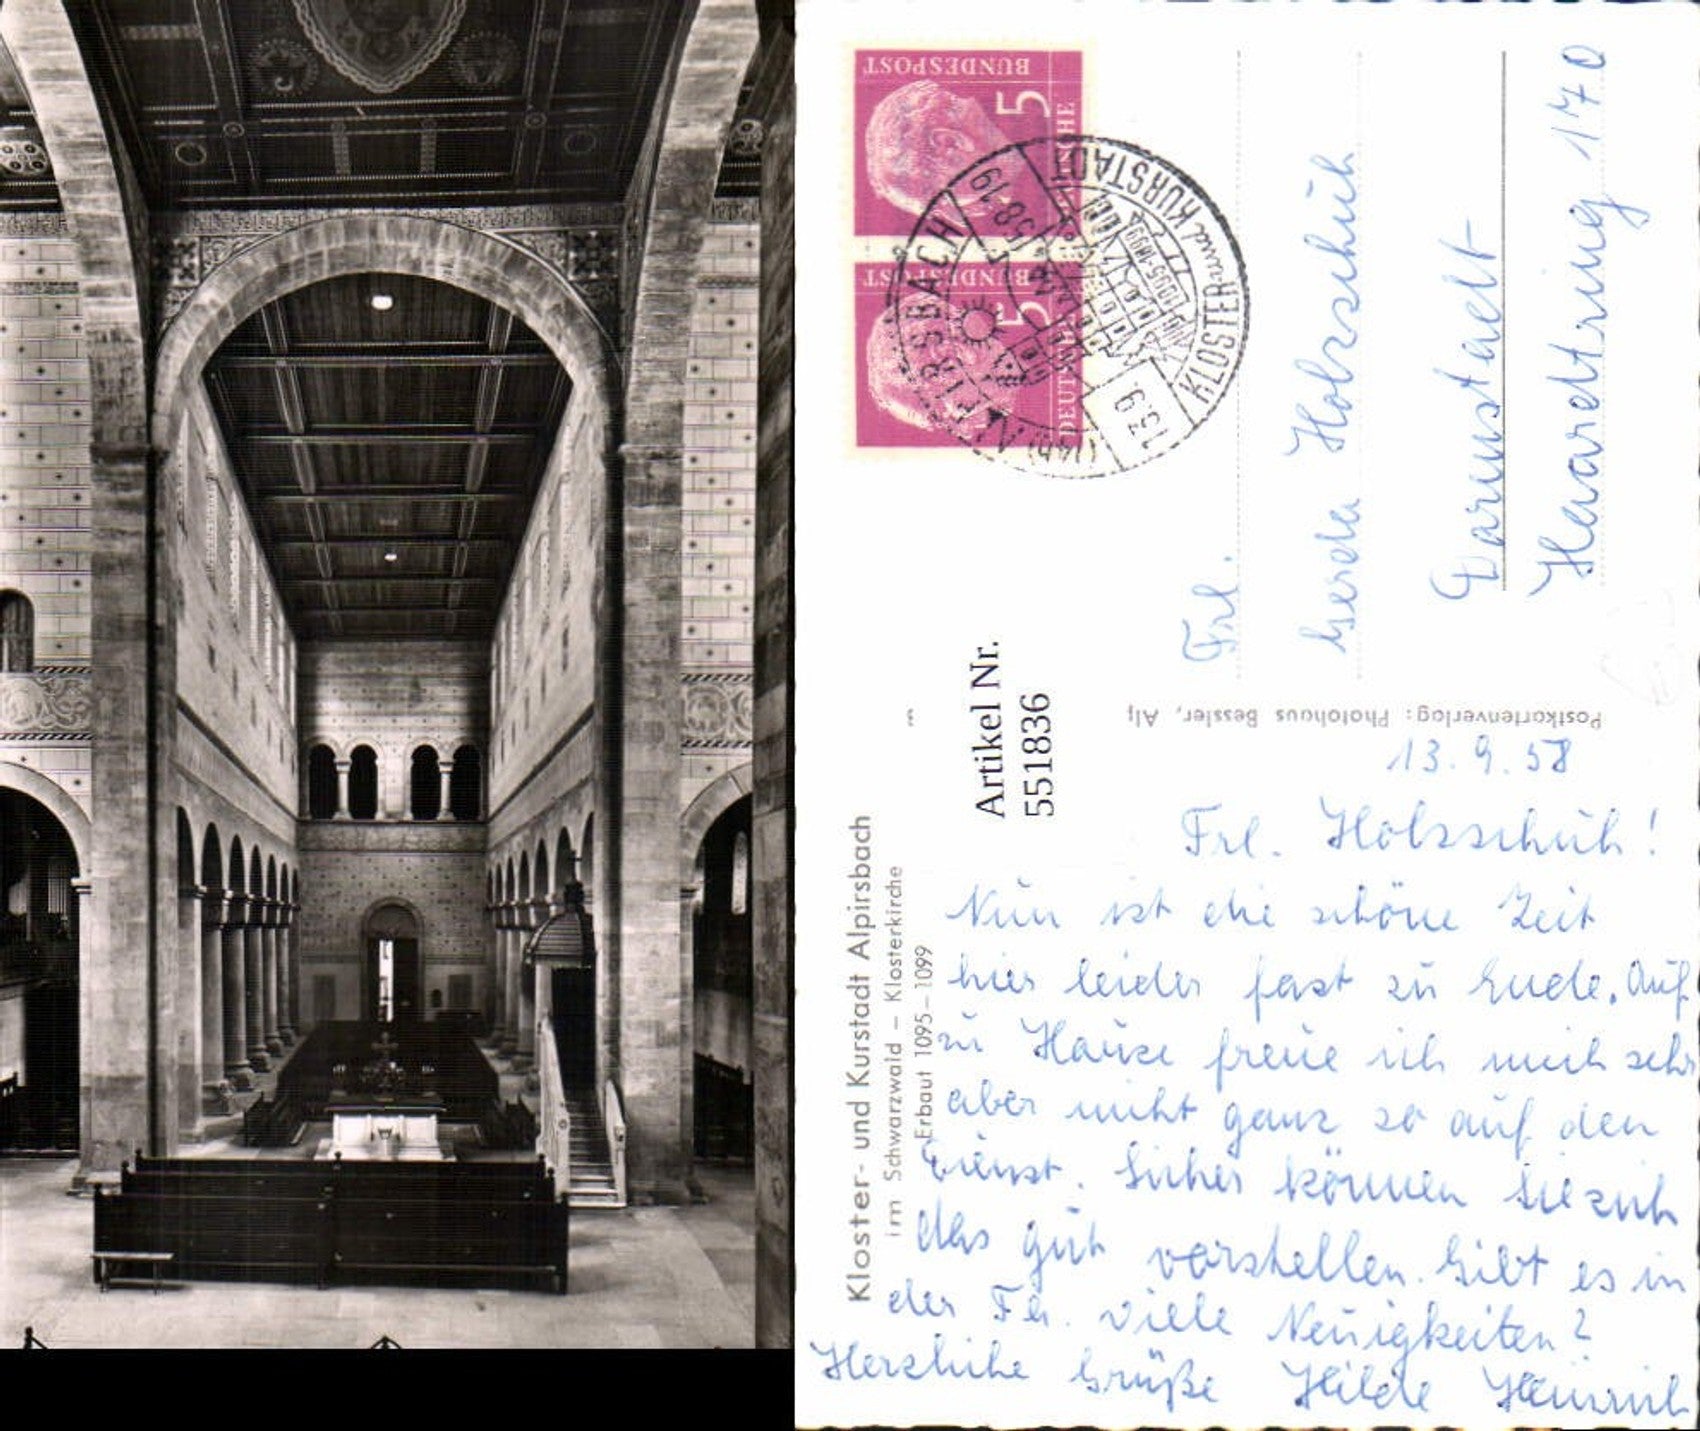 BUNDESPOST
5
DEUTSCHE
BUNDESPOST
5
DEUTSCHE
(14b) ALPIRSBACH
KLOSTER und KURSTADT
13.9.58-19
1095-1899
Frl.
Gerda Holzschuh
Darmstadt
Haardtring 170
Postkartenverlag: Photohaus Bessler, Alp
Artikel Nr.
551836
Kloster- und Kurstadt Alpirsbach
im Schwarzwald – Klosterkirche
Erbaut 1095–1099
13.9.58
Frl. Holzschuh!
Nun ist die schöne Zeit
hier leider fast zu Ende. Auf
zu Hause freue ich mich sehr
aber nicht ganz so auf den
Dienst. Sicher können Sie sich
das gut vorstellen. Gibt es in
der Fa. viele Neuigkeiten?
Herzliche Grüße Hilde Heinrich